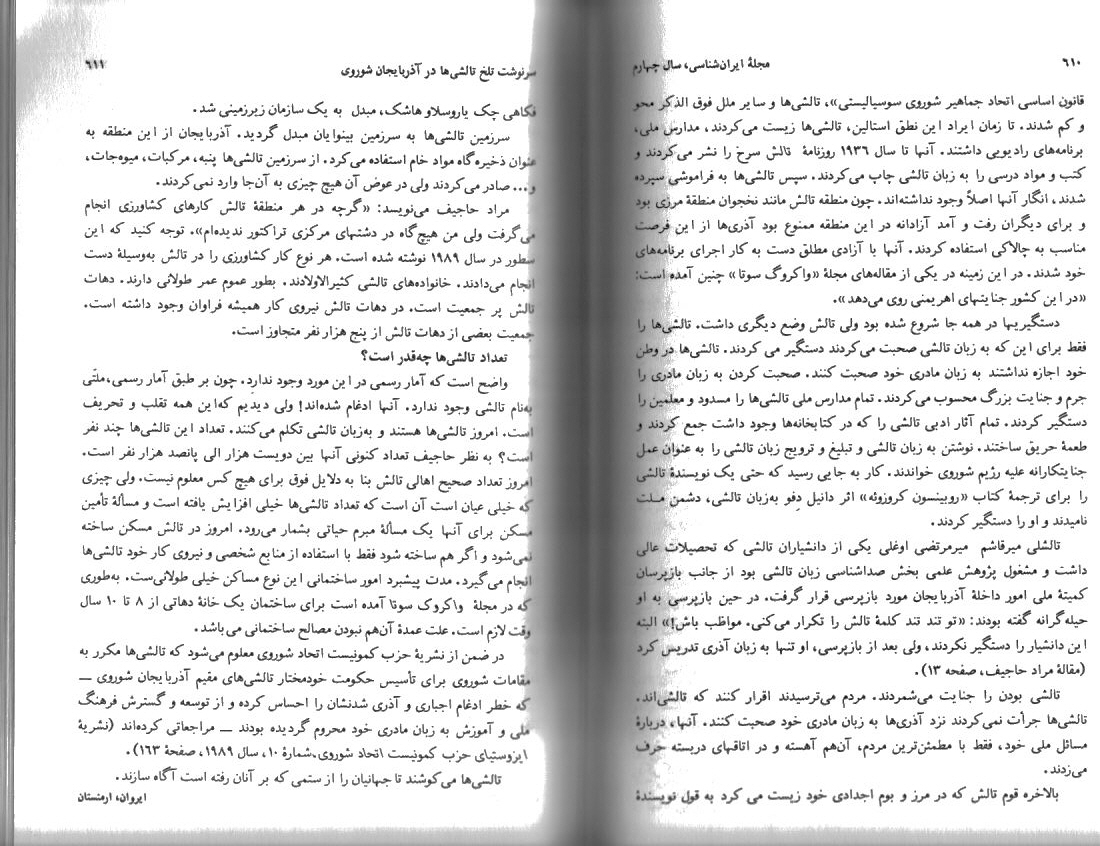 ۶۱۰
مجلهٔ ایران‌شناسی، سال چهارم
قانون اساسی اتحاد جماهیر شوروی سوسیالیستی»، تالشی‌ها و سایر ملل فوق الذکر محو
و کم شدند. تا زمان ایراد این نطق استالین، تالشی‌ها زیست می‌کردند، مدارس ملی،
برنامه‌های رادیویی داشتند. آنها تا سال ۱۹۳۶ روزنامهٔ تالش سرخ را نشر می‌کردند و
کتب و مواد درسی را به زبان تالشی چاپ می‌کردند. سپس تالشی‌ها به فراموشی سپرده
شدند، انگار آنها اصلاً وجود نداشته‌اند. چون منطقه تالش مانند نخجوان منطقهٔ مرزی بود
و برای دیگران رفت و آمد آزادانه در این منطقه ممنوع بود آذری‌ها از این فرصت
مناسب به چالاکی استفاده کردند. آنها با آزادی مطلق دست به کار اجرای برنامه‌های
خود شدند. در این زمینه در یکی از مقاله‌های مجلهٔ «واکروگ سوتا» چنین آمده است:
«در این کشور جنایتهای اهریمنی روی می‌دهد».
دستگیریها در همه جا شروع شده بود ولی تالش وضع دیگری داشت. تالشی‌ها را
فقط برای این که به زبان تالشی صحبت می‌کردند دستگیر می کردند. تالشی‌ها در وطن
خود اجازه نداشتند به زبان مادری خود صحبت کنند. صحبت کردن به زبان مادری را
جرم و جنایت بزرگ محسوب می‌کردند. تمام مدارس ملی تالشی‌ها را مسدود و معلمین را
دستگیر کردند. تمام آثار ادبی تالشی را که در کتابخانه‌ها وجود داشت جمع کردند و
طعمهٔ حریق ساختند. نوشتن به زبان تالشی و تبلیغ و ترویج زبان تالشی را به عنوان عمل
جنایتکارانه علیه رژیم شوروی خواندند. کار به جایی رسید که حتی یک نویسندهٔ تالشی
را برای ترجمهٔ کتاب «روبینسون کروزوئه» اثر دانیل دِفو به‌زبان تالشی، دشمن ملت
نامیدند و او را دستگیر کردند.
تالشلی میرقاشم میرمرتضی اوغلی یکی از دانشیاران تالشی که تحصیلات عالی
داشت و مشغول پژوهش علمی بخش صداشناسی زبان تالشی بود از جانب بازپرسان
کمیتهٔ ملی امور داخلهٔ آذربایجان مورد بازپرسی قرار گرفت. در حین بازپرسی به او
حیله‌گرانه گفته بودند: «تو تند تند کلمهٔ تالش را تکرار می‌کنی. مواظب باش!» البته
این دانشیار را دستگیر نکردند، ولی بعد از بازپرسی، او تنها به زبان آذری تدریس کرد
(مقالهٔ مراد حاجیف، صفحه ۱۳).
تالشی بودن را جنایت می‌شمردند. مردم می‌ترسیدند اقرار کنند که تالشی‌اند.
تالشی‌ها جرأت نمی‌کردند نزد آذری‌ها به زبان مادری خود صحبت کنند. آنها، دربارهٔ
مسائل ملی خود، فقط با مطمئن‌ترین مردم، آن‌هم آهسته و در اتاقهای دربسته حرف
می‌زدند.
بالاخره قوم تالش که در مرز و بوم اجدادی خود زیست می کرد به قول نویسندهٔ
سرنوشت تلخ تالشی‌ها در آذربایجان شوروی
۶۱۱
فکاهی چک یاروسلاو هاشک، مبدل به یک سازمان زیرزمینی شد.
سرزمین تالشی‌ها به سرزمین بینوایان مبدل گردید. آذربایجان از این منطقه به
عنوان ذخیره‌گاه مواد خام استفاده می‌کرد. از سرزمین تالشی‌ها پنبه، مرکبات، میوه‌جات،
و... صادر می‌کردند ولی در عوض آن هیچ چیزی به آن‌جا وارد نمی‌کردند.
مراد حاجیف می‌نویسد: «گرچه در هر منطقهٔ تالش کارهای کشاورزی انجام
می‌گرفت ولی من هیچ‌گاه در دشتهای مرکزی تراکتور ندیده‌ام». توجه کنید که این
سطور در سال ۱۹۸۹ نوشته شده است. هر نوع کار کشاورزی را در تالش به‌وسیلهٔ دست
انجام می‌دادند. خانواده‌های تالشی کثیرالاولادند. بطور عموم عمر طولانی دارند. دهات
تالش پر جمعیت است. در دهات تالش نیروی کار همیشه فراوان وجود داشته است.
جمعیت بعضی از دهات تالش از پنج هزار نفر متجاوز است.
تعداد تالشی‌ها چه‌قدر است؟
واضح است که آمار رسمی در این مورد وجود ندارد. چون بر طبق آمار رسمی، ملّتی
به‌نام تالشی وجود ندارد. آنها ادغام شده‌اند! ولی دیدیم که‌این همه تقلب و تحریف
است. امروز تالشی‌ها هستند و به‌زبان تالشی تکلم می‌کنند. تعداد این تالشی‌ها چند نفر
است؟ به نظر حاجیف تعداد کنونی آنها بین دویست هزار الی پانصد هزار نفر است.
امروز تعداد صحیح اهالی تالش بنا به دلایل فوق برای هیچ کس معلوم نیست. ولی چیزی
که خیلی عیان است آن است که تعداد تالشی‌ها خیلی افزایش یافته است و مسألهٔ تأمین
مسکن برای آنها یک مسألهٔ مبرم حیاتی بشمار می‌رود. امروز در تالش مسکن ساخته
نمی‌شود و اگر هم ساخته شود فقط با استفاده از منابع شخصی و نیروی کار خود تالشی‌ها
انجام می‌گیرد. مدت پیشبرد امور ساختمانی این نوع مساکن خیلی طولانی‌ست. به‌طوری
که در مجلهٔ واکروک سوتا آمده است برای ساختمان یک خانهٔ دهاتی از ۸ تا ۱۰ سال
وقت لازم است. علت عمدهٔ آن‌هم نبودن مصالح ساختمانی می باشد.
در ضمن از نشریهٔ حزب کمونیست اتحاد شوروی معلوم می‌شود که تالشی‌ها مکرر به
مقامات شوروی برای تأسیس حکومت خودمختار تالشی‌های مقیم آذربایجان شوروی —
که خطر ادغام اجباری و آذری شدنشان را احساس کرده و از توسعه و گسترش فرهنگ
ملی و آموزش به زبان مادری خود محروم گردیده بودند — مراجعاتی کرده‌اند (نشریهٔ
ایزوستیای حزب کمونیست اتحاد شوروی، شمارهٔ ۱۰، سال ۱۹۸۹، صفحهٔ ۱۶۳).
تالشی‌ها می‌کوشند تا جهانیان را از ستمی که بر آنان رفته است آگاه سازند.
ایروان، ارمنستان